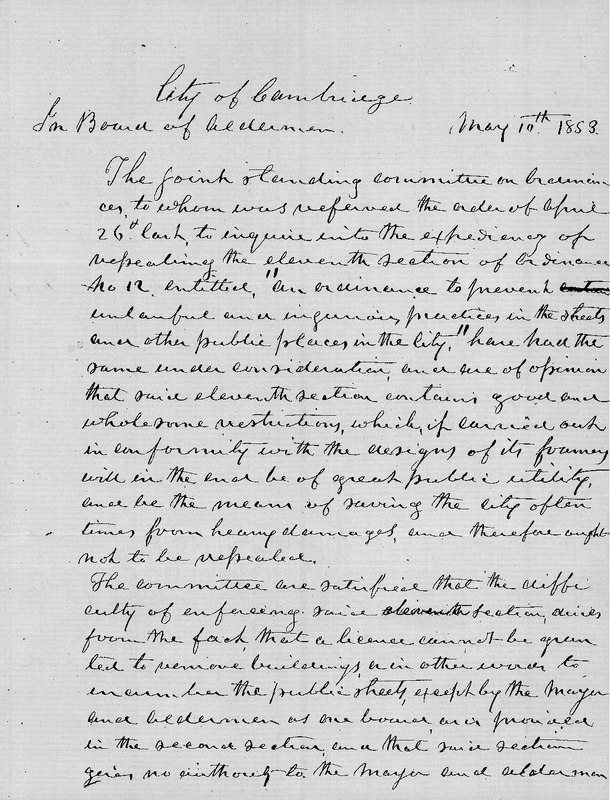 City of Cambridge
In Board of Aldermen. May 10th 1853.
The joint standing committee on Ordinan
ces, to whom was referred the order of April
26th last, to inquire into the expediency of
repealing the eleventh section of Ordinance
No 12. entitled, "an ordinance to prevent
unlawful and injurious practices in the streets
and other public places in the city," have had the
same under consideration, and are of opinion
that said eleventh section contains good and
wholesome restrictions, which, if carried out
in conformity with the designs of its framers
will in the end be of great public utility,
and be the means of saving the city often
times from heavy damages, and therefore ought
not to be repealed.
The committee are satisfied that the diffi
culty of enforceing said eleventh section, arises
from the fact, that a licence cannot be gran
ted to remove buildings, or in other words to
incumber the public streets, except by the Mayor
and Aldermen as one board, as is provided
in the second section, and that said section
gives no authority to the Mayor and alderman